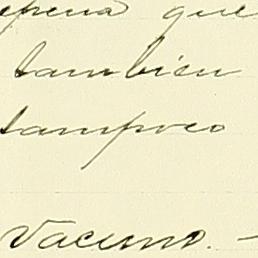 que
tambien
tampoco
vacuno. -